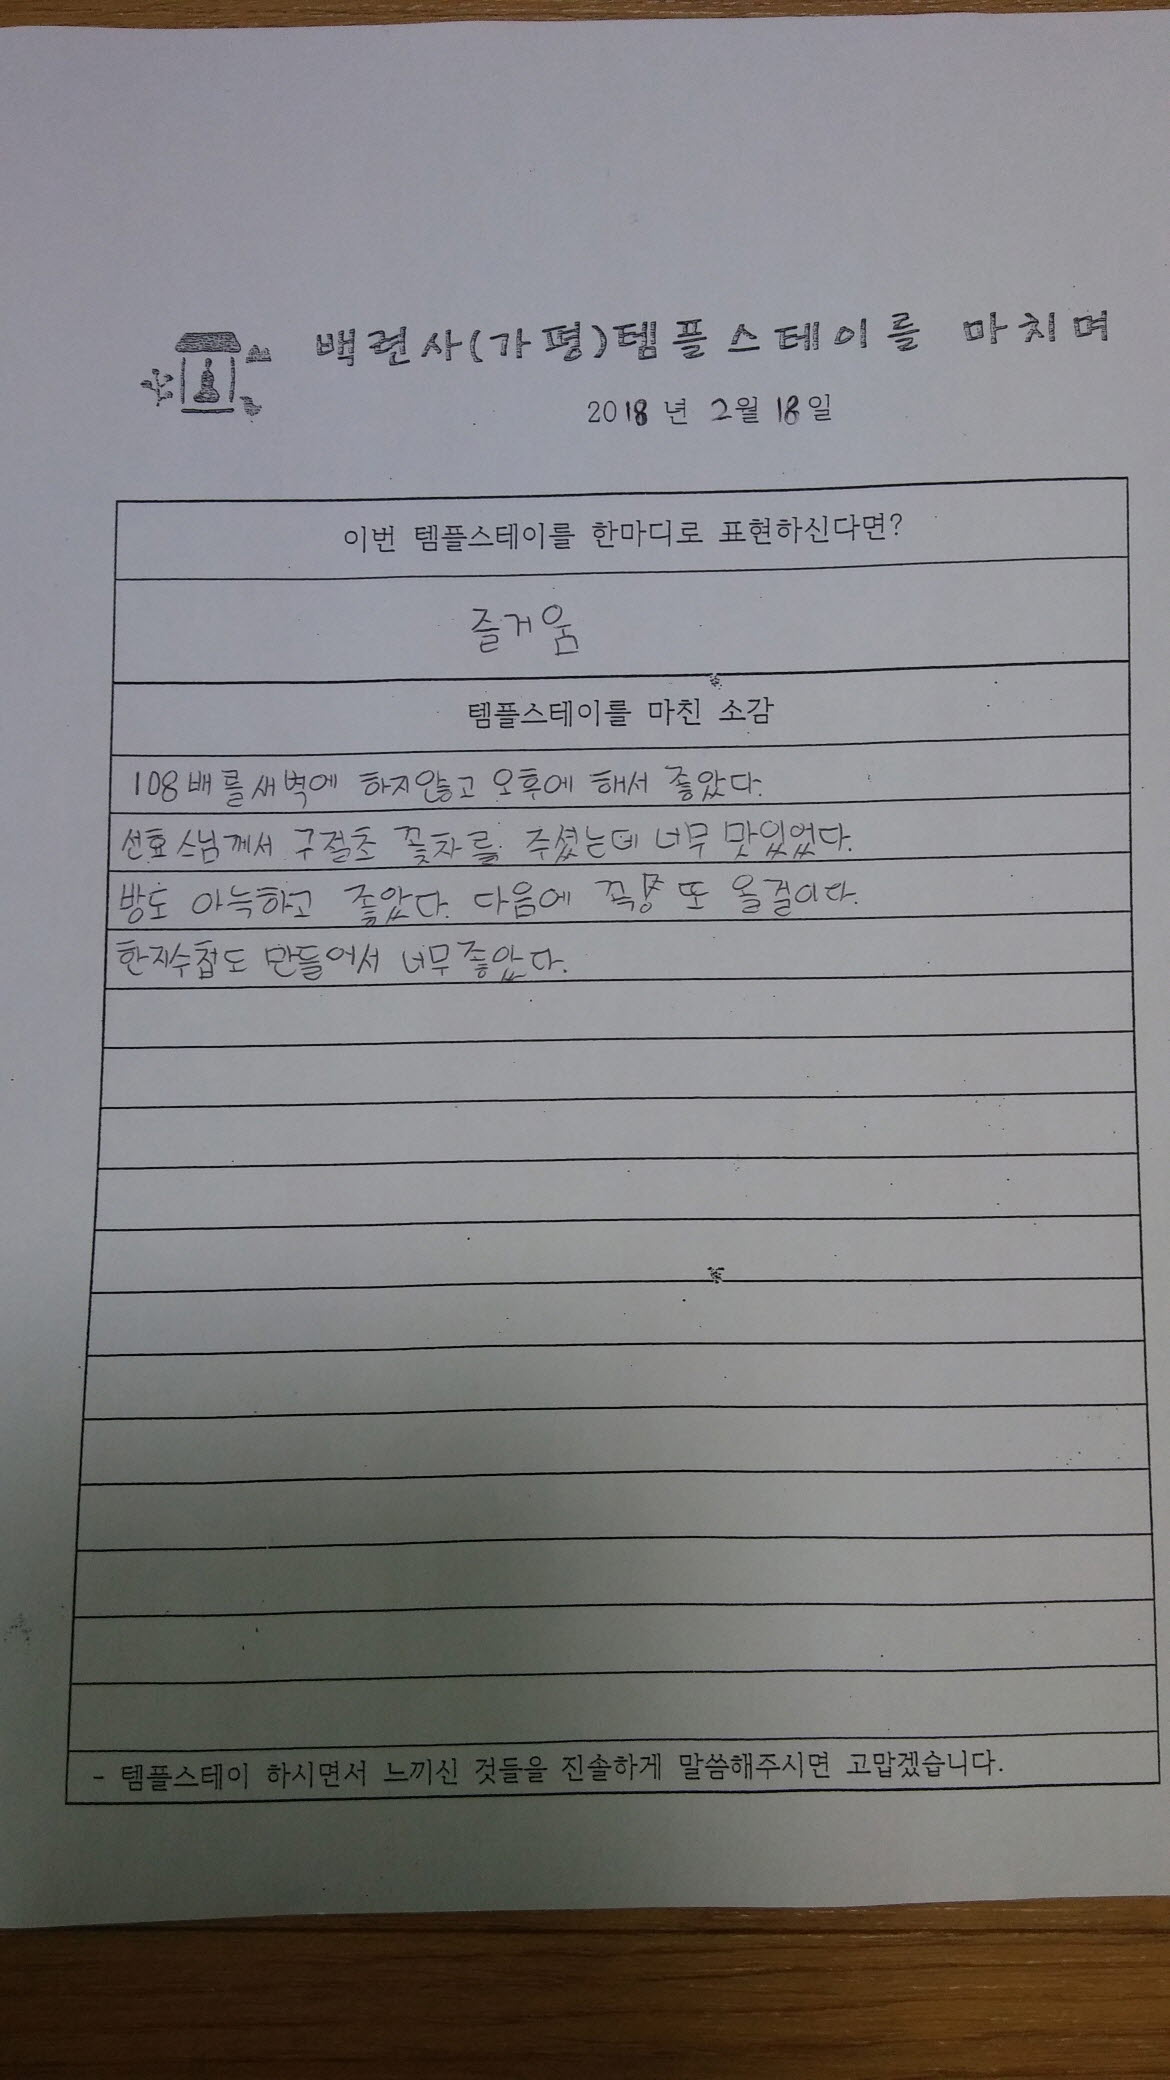 백련사(가평)템플스테이를 마치며
2018년 2월 18일
이번 템플스테이를 한마디로 표현하신다면?
즐거움
템플스테이를 마친 소감
108배를 새벽에 하지않고 오후에 해서 좋았다.
선효스님께서 구절초 꽃차를 주셨는데 너무 맛있었다.
방도 아늑하고 좋았다. 다음에 꼭 또 올걸이다.
한지수첩도 만들어서 너무 좋았다.
- 템플스테이 하시면서 느끼신 것들을 진솔하게 말씀해주시면 고맙겠습니다.